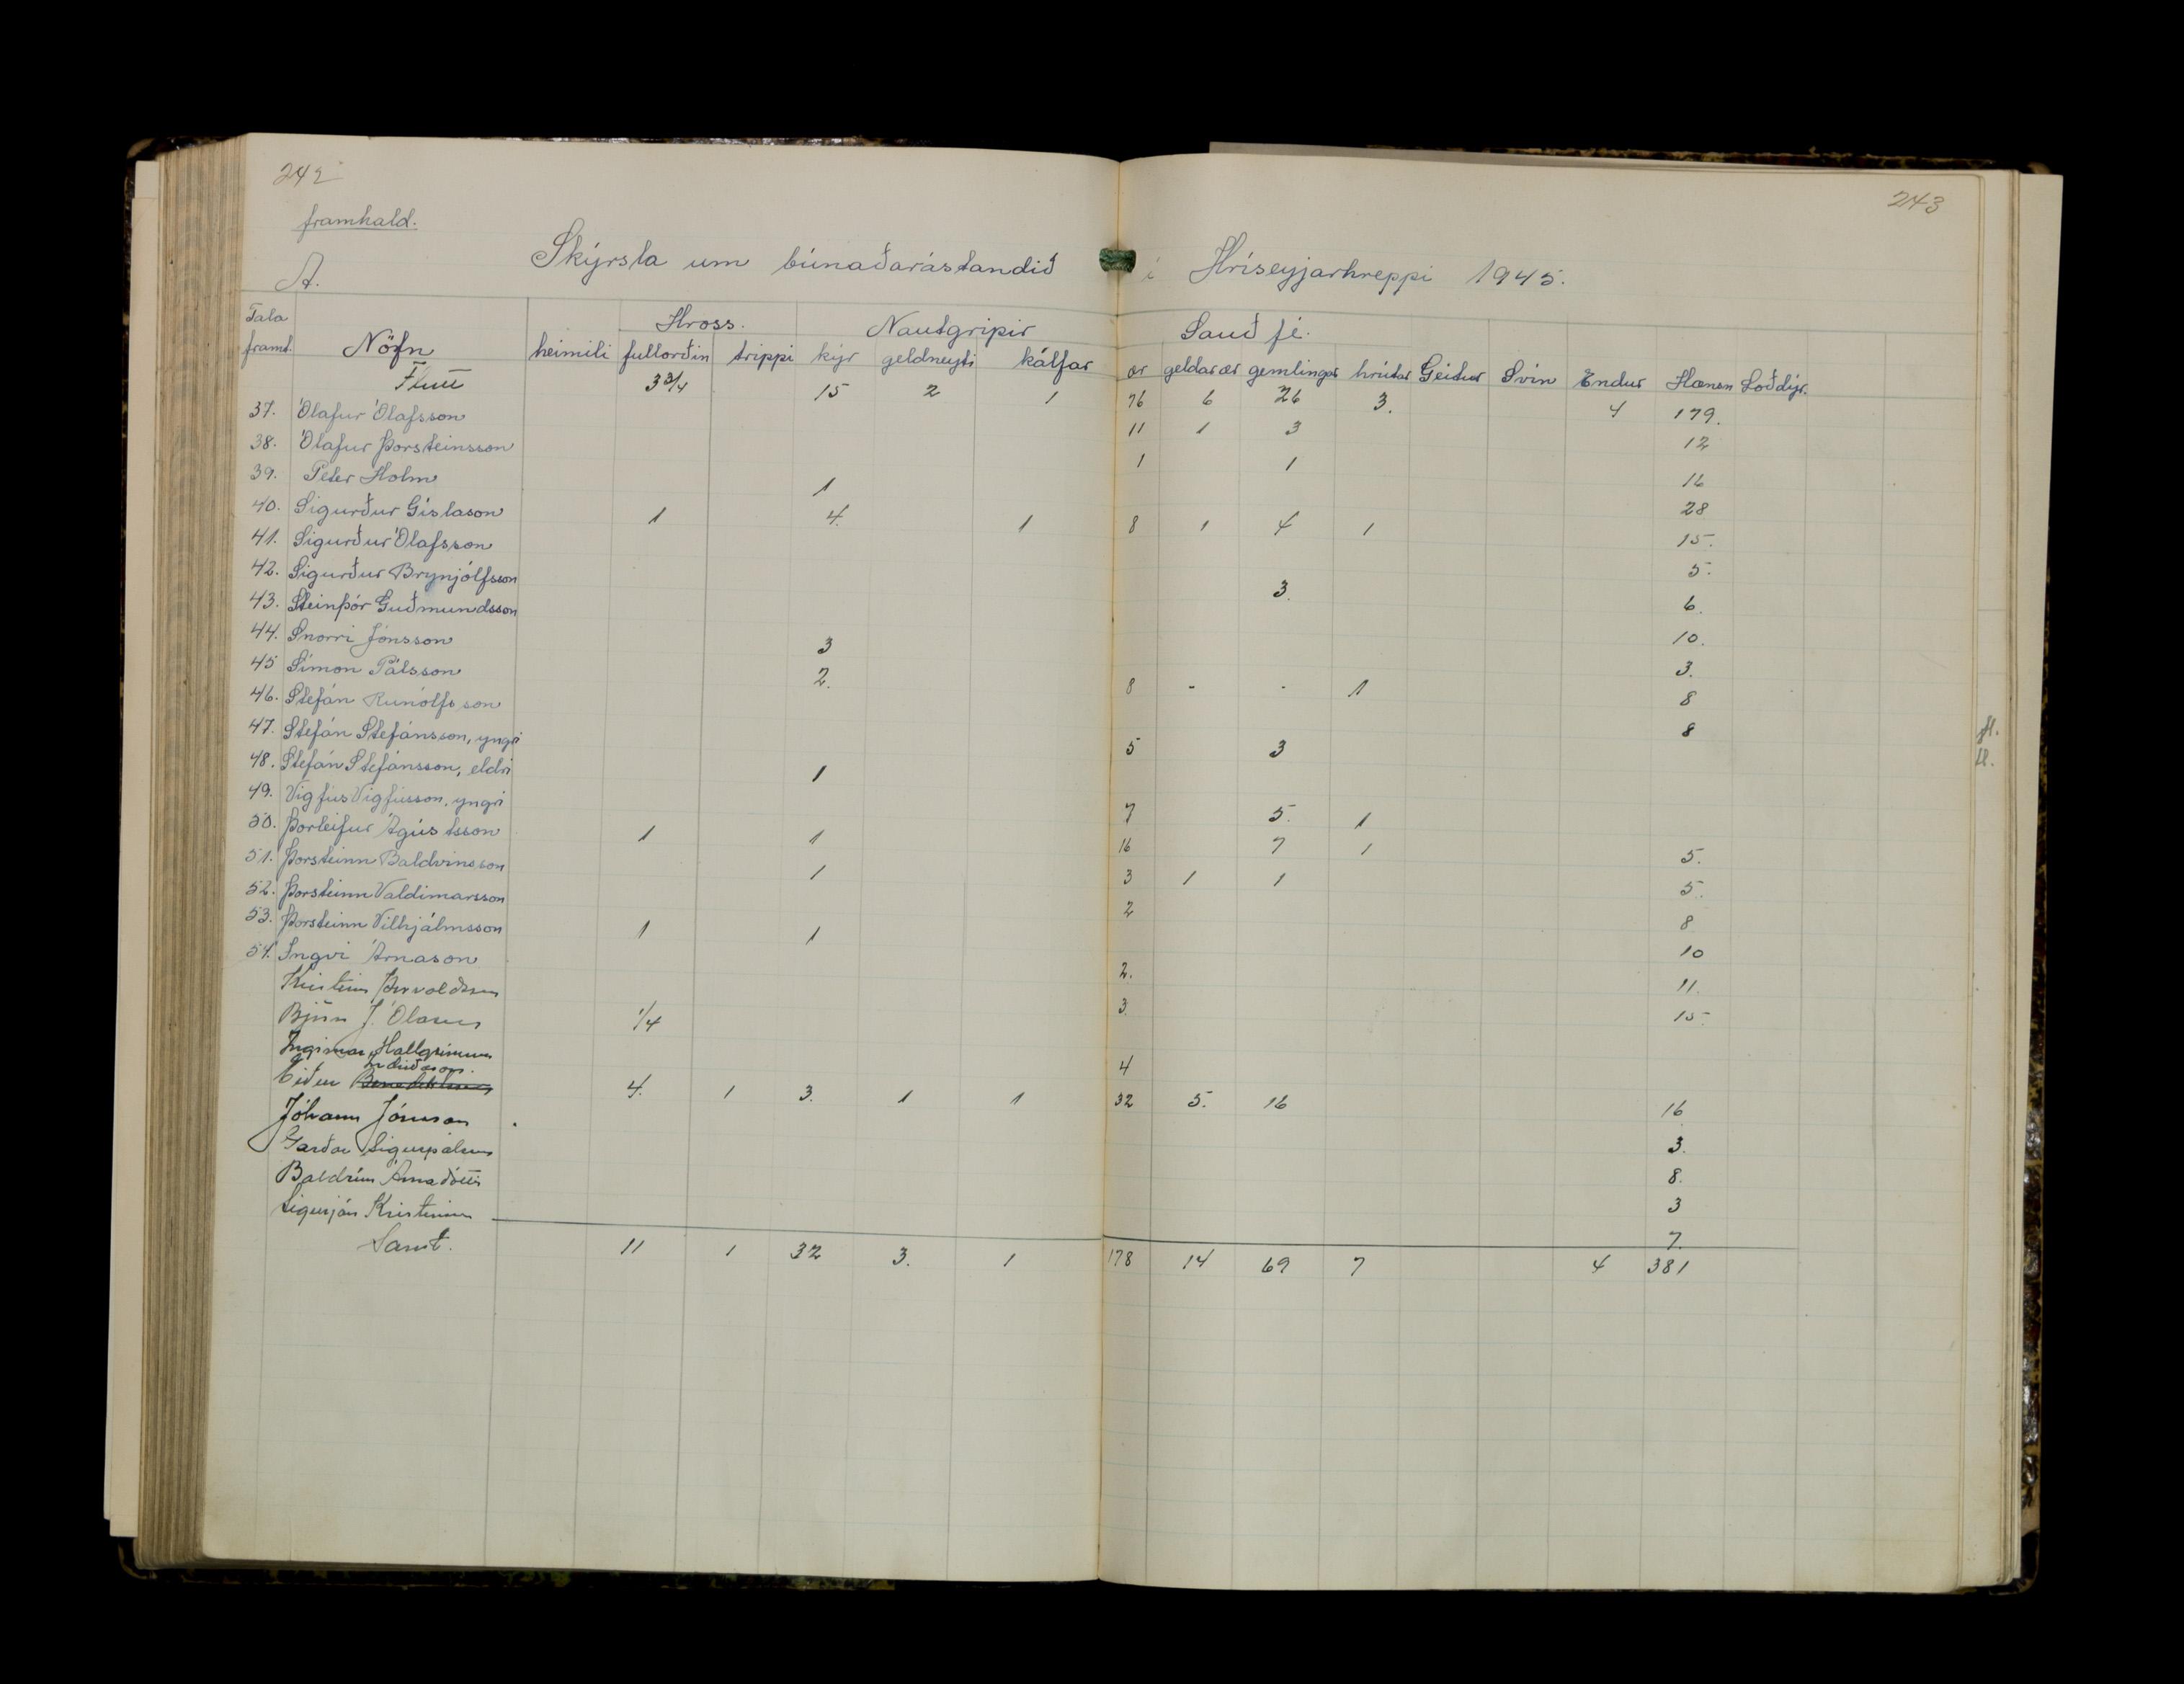 242
243
framhald.
A. Skýrsla um búnaðarástandið í Hríseyjarhreppi 1945.
Hross. Nautgripir Sauðfé.
Tala framt. Nöfn heimili fullorðin trippi kýr geldneyti kálfar ær geldar ær gemlingar hrútar Geitur Svín Endur Hænsn Loðdýr.
Flutt 3 3/4 15 2 1 76 6 26 3. 4 179.
37. Ólafur Ólafsson 11 1 3 12
38. Ólafur Þorsteinsson 1 1 16
39. Peter Holm 1 28
40. Sigurður Gíslason 1 4. 1 8 1 4 1 15.
41. Sigurður Ólafsson 5.
42. Sigurður Brynjólfsson 3. 6.
43. Steinþór Guðmundsson 10.
44. Snorri Jónsson 3 3.
45 Símon Pálsson 2. 8 - - 1 8
46. Stefán Runólfsson 8
47. Stefán Stefánsson, yngri 5 3
48. Stefán Stefánsson, eldri 1
49. Vigfús Vigfússon, yngri 7 5. 1
50. Þorleifur Ágústsson 1 1 16 7 1 5.
51. Þorsteinn Baldvinsson 1 3 1 1 5.
52. Þorsteinn Valdimarsson 2 8
53. Þorsteinn Vilhjálmsson 1 1 10
54. Ingvi Árnason 2. 11.
Kristinn Þorvaldsson 3. 15.
Björn J. Ólason 1/4
Ingimar Hallgrímsson 4
Indriðason.
Eiður Benediktsson 4. 1 3. 1 1 32 5. 16 16
Jóhann Jónsson 3.
Garðar Sigurpálsson 8.
Baldrún Árnadóttir 3
Sigurjón Kristinsson 7.
Samt. 11 1 32 3. 1 178 14 69 7 4 381